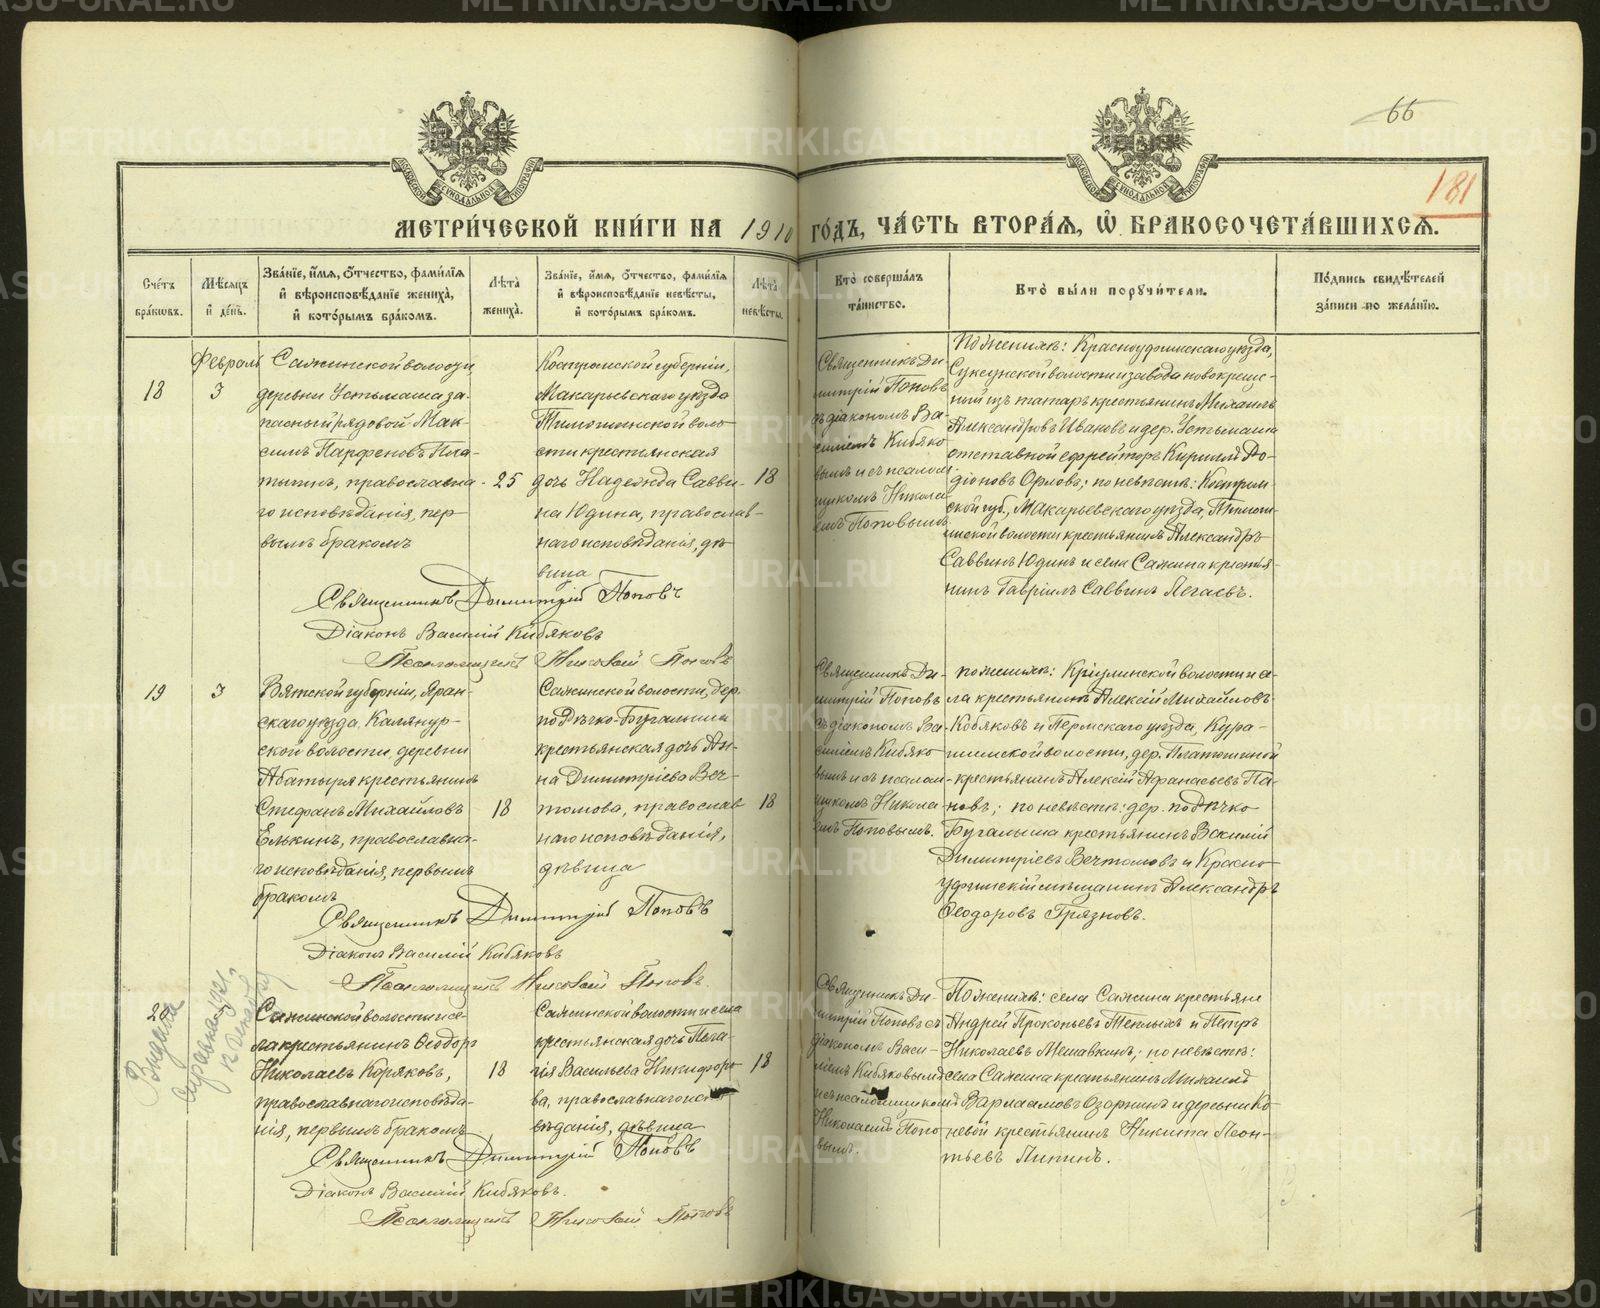 66
181
МОСКОВСКОЙ СѴНОДАЛЬНОЙ ТИПОГРАФІИ
МОСКОВСКОЙ СѴНОДАЛЬНОЙ ТИПОГРАФІИ
МЕТРИ́ЧЕСКОЙ КНИ́ГИ НА 1910 ГО́ДЪ, ЧА́СТЬ ВТОРА́Я, Ѡ҆ БРАКОСОЧЕТА́ВШИХСЯ.
Сче́тъ
бра́ковъ.
Мѣ́сяцъ
и҆ де́нь.
Зва́нїе, и҆́мя, о҆́тчество, фами́лїя
и҆ вѣроисповѣ́данїе жениха̀,
и҆ кото́рымъ бра́комъ.
Лѣ́та
жениха̀.
Зва́нїе, и҆́мя, о҆́тчество, фами́лїя
и҆ вѣроисповѣ́данїе невѣ́сты,
и҆ кото́рымъ бра́комъ.
Лѣ́та
невѣ́сты.
Кто̀ соверша́лъ
та́инство.
Кто̀ бы́ли порꙋчи́тели.
По́дпись свидѣ́телей
за́писи по жела́нїю.
18
Февраль
3
Сажинской волости,
деревни Устьмаша за-
пасный рядовой Мак-
симъ Парфеновъ Пла-
тыгинъ, православна-
го исповѣданія, пер-
вымъ бракомъ
25
Костромской губерніи,
Макарьевскаго уѣзда
Тимошинской воло-
сти крестьянская
дочь Надежда Савви-
на Юдина, православ-
наго исповѣданія, дѣ-
вица
18
Священникъ Ди-
митрій Поповъ
съ діакономъ Ва-
силіемъ Кибяко-
вымъ и съ псалом-
щикомъ Никола-
емъ Поповымъ
По женихѣ: Красноуфимскаго уѣзда,
Суксунской волости и завода новокреще-
ный изъ татаръ крестьянинъ Михаилъ
Александровъ Ивановъ и дер. Устьмаша
отставной ефрейторъ Кириллъ Ро-
діоновъ Орловъ; по невѣстѣ: Костром-
ской губ., Макарьевскаго уѣзда, Тимо-
шинской волости крестьянинъ Александръ
Саввинъ Юдинъ и села Сажина крестья-
нинъ Гавріилъ Саввинъ Пегаевъ.
Священникъ Димитрій Поповъ
Діаконъ Василій Кибяковъ
Псаломщикъ Николай Поповъ
19
3
Вятской губерніи, Яран-
скаго уѣзда, Калянур-
ской волости, деревни
Абатыря крестьянинъ
Стефанъ Михайловъ
Елькинъ, православна-
го исповѣданія, первымъ
бракомъ
18
Сажинской волости, дер.
по Рѣчко-Бугалыша
крестьянская дочь Ан-
на Димитріева Веч-
томова, православ-
наго исповѣданія,
дѣвица
18
Священникъ Ди-
митрій Поповъ
съ діакономъ Ва-
силіемъ Кибяко-
вымъ и съ псалом-
щикомъ Никола-
емъ Поповымъ.
по женихѣ: Криулинской волости и се-
ла крестьянинъ Алексій Михайловъ
Кобяковъ и Пермскаго уѣзда, Кура-
шимской волости, дер. Платошиной
крестьянинъ Алексій Афанасьевъ Па-
новъ; по невѣстѣ: дер. по Рѣчко
Бугалыша крестьянинъ Василій
Димитріевъ Вечтомовъ и Красно-
уфимскій мѣщанинъ Александръ
Ѳеодоровъ Грязновъ.
Священникъ Димитрій Поповъ
Діаконъ Василій Кибяковъ
Псаломщикъ Николай Поповъ.
20
Выдана
справка
Сажинской волости и се-
ла крестьянинъ Ѳеодоръ
Николаевъ Коряковъ,
православнаго исповѣда-
нія, первымъ бракомъ
18
Сажинской волости и села
крестьянская дочь Пела-
гія Васильева Никифоро-
ва, православнаго испо-
вѣданія, дѣвица
18
Священникъ Ди-
митрій Поповъ съ
діакономъ Васи-
ліемъ Кибяковымъ
и съ псаломщикомъ
Николаемъ Попо-
вымъ.
По женихѣ: села Сажина крестьяне
Андрей Прокопьевъ Теплыхъ и Петръ
Николаевъ Мешавкинъ; по невѣстѣ:
села Сажина крестьянинъ Михаилъ
Варлаамовъ Озорнинъ и деревни Ко-
невой крестьянинъ Никита Леон-
тьевъ Пипинъ.
Священникъ Димитрій Поповъ
Діаконъ Василій Кибяковъ.
Псаломщикъ Николай Поповъ
METRIKI.GASO-URAL.RU